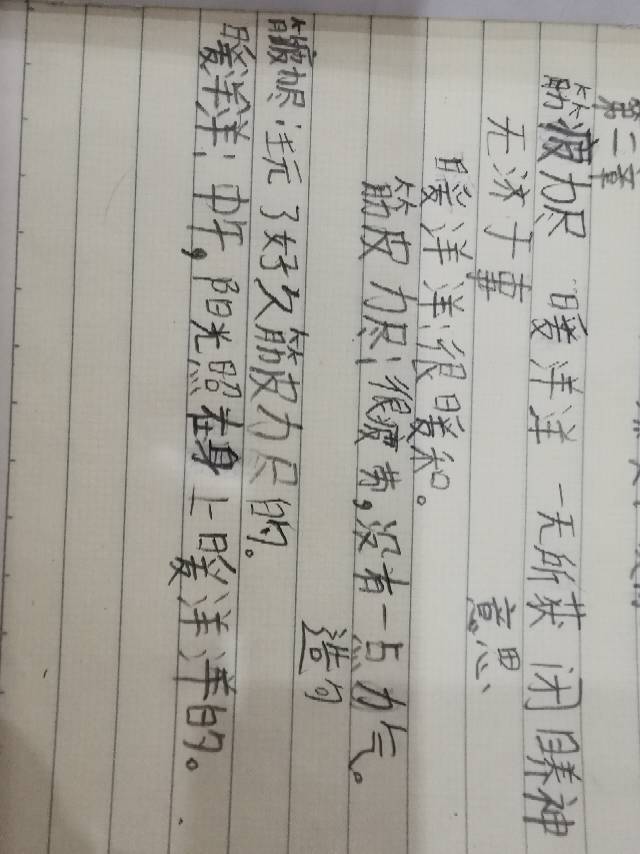 第二章
筋疲力尽 暖洋洋 一无所获 闭目养神
无济于事
意思、
暖洋洋:很暖和。
筋皮力尽:很疲劳,没有一点力气。
造句
筋皮力尽:玩了好久筋皮力尽的。
暖洋洋:中午,阳光照在身上暖洋洋的。